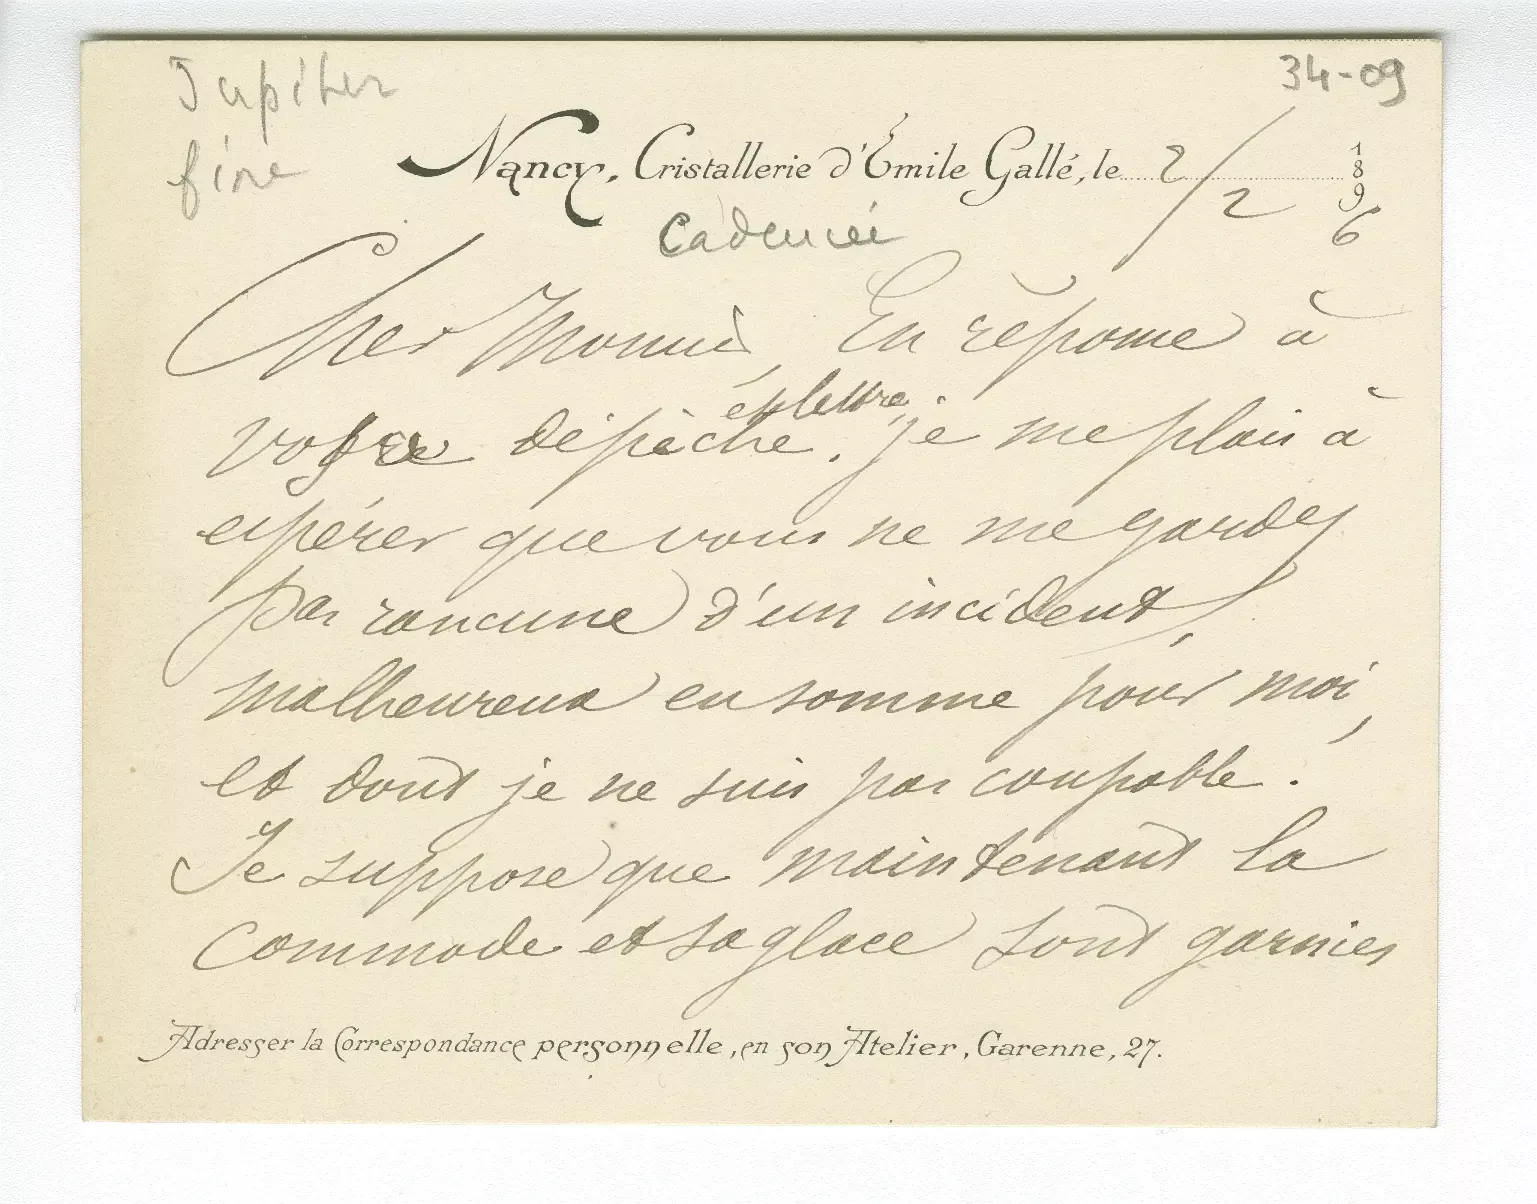 Jupiter
fine
34-09
Nancy, Cristallerie d'Émile Gallé, le 2/2 1896
Cher Monsieur, En réponse à
et lettre
votre dépèche, je me plais à
espérer que vous ne me gardez
pas rancune d'un incident,
malheureux en somme pour moi,
et dont je ne suis pas coupable.
Je suppose que maintenant la
commode et sa glace sont garnies
Adresser la Correspondance personnelle, en son Atelier, Garenne, 27.